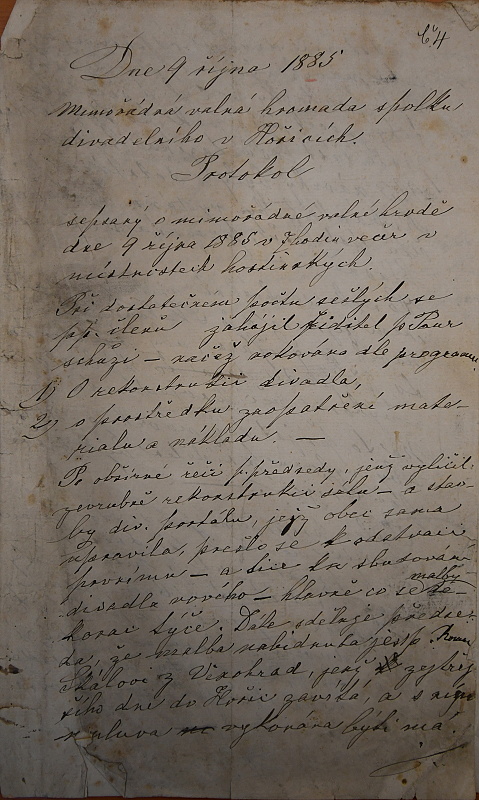 č. 4
Dne 9 října 1885
Mimořádná valná hromada spolku
divadelního v Hořicích.
Protokol
sepsaný o mimořádné valné hrodě
dne 9 října 1885 v 7 hodin večer v
místnostech hostinských.
Při dostatečném počtu sešlých se
pp. členů zahájil ředitel p. Paur
schůzi – načež rokováno dle programu.
1) O rekonstrukci divadla,
2) o prostředku zaopatření mate-
rialu a nákladu. —
Po obšírné řeči p. předsedy, jenž vylíčil
zevrubně rekonstrukci sálu – a stav-
by div. portálu, jejž obec sama
upravila, prešlo se k odstavci
prvnímu – a sice ku zbudování
divadla nového – hlavně co se malby de-
korac týče. Dále sděluje předse-
da, že malba nabídnuta jest p.
Skálovi z Vinohrad, jenž zejtřej-
šího dne do Hořic zavítá, a s ním
smluva vykonána býti má.